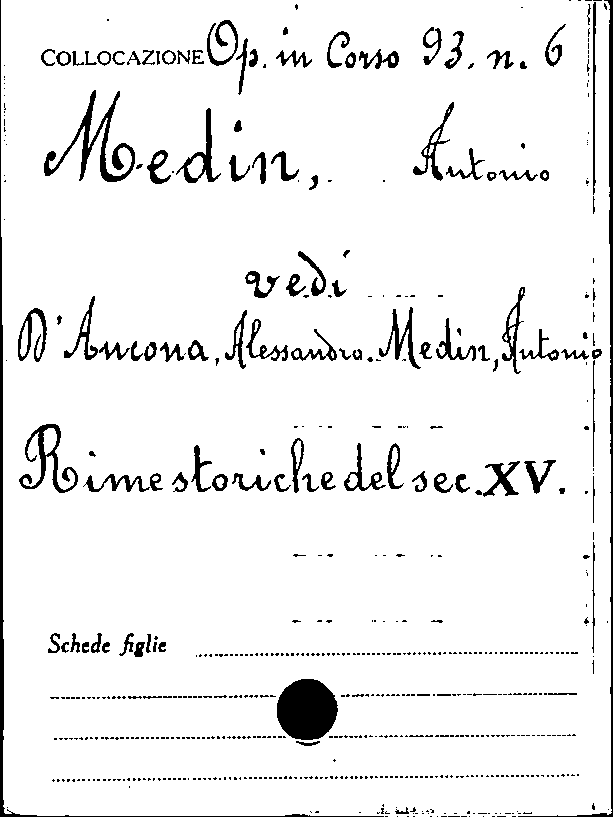 COLLOCAZIONE Op. in Corso 93. n. 6
Medin, Antonio
vedi
D'Ancona, Alessandro. Medin, Antonio
Rime storiche del sec. XV.
Schede figlie